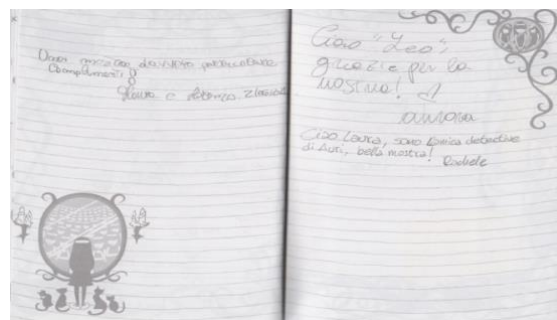 Una mostra davvero particolare.
Complimenti!
e Lorenzo
Ciao "Leo",
grazie per la
mostra!
Aurora
Ciao Laura, sono l'amica detective
di Auri, bella mostra!
Rachele